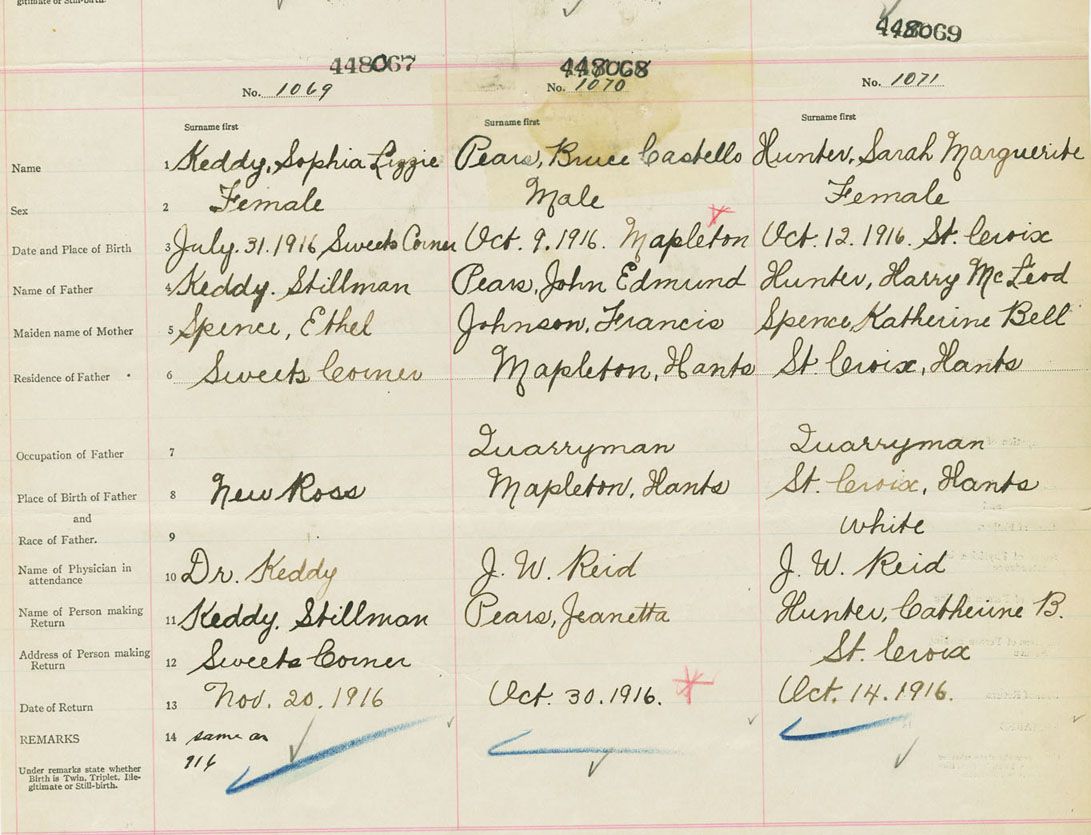 gitimate or Still-birth.
448067 448068 448069
No. 1069 No. 1070 No. 1071
Surname first Surname first Surname first
Name 1 Keddy, Sophia Lizzie Pears, Bruce Castello Hunter, Sarah Marguerite
Sex 2 Female Male Female
Date and Place of Birth 3 July. 31. 1916 Sweets Corner Oct. 9. 1916. Mapleton Oct. 12. 1916. St. Croix
Name of Father 4 Keddy. Stillman Pears, John Edmund Hunter, Harry McLeod
Maiden name of Mother 5 Spence, Ethel Johnson, Francis Spence, Katherine Bell
Residence of Father 6 Sweets Corner Mapleton, Hants St. Croix, Hants
Occupation of Father 7 Quarryman Quarryman
Place of Birth of Father 8 New Ross Mapleton, Hants St. Croix, Hants
and
Race of Father. 9 White
Name of Physician in
attendance 10 Dr. Keddy J. W. Reid J. W. Reid
Name of Person making
Return 11 Keddy, Stillman Pears, Jeanetta Hunter, Catherine B.
Address of Person making
Return 12 Sweets Corner St. Croix
Date of Return 13 Nov. 20. 1916 Oct. 30. 1916. Oct. 14. 1916.
REMARKS 14 same as
916
Under remarks state whether
Birth is Twin, Triplet, Ille-
gitimate or Still-birth.